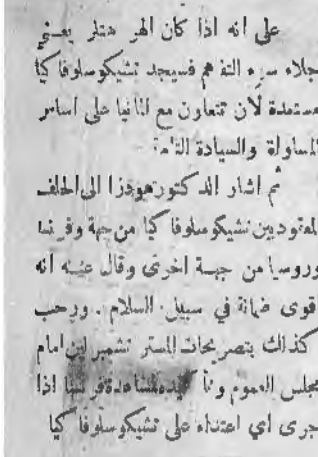 على انه اذا كان الهر هتلر يعني
جلاء سوء التفاهم فسيجد تشيكوسلوفاكيا
مستعدة لأن تتعاون مع المانيا على اساس
المساواة والسيادة التامة
ثم اشار الدكتور هودزا الى الحلف
المعقود بين تشيكوسلوفاكيا من جهة وفرنسا
وروسيا من جهة اخرى وقال عنه انه
اقوى ضمانة في سبيل السلام . ورحب
كذلك بتصريحات المستر تشمبرلين امام
مجلس العموم لمساعدة فرنسا اذا
جرى اي اعتداء على تشيكوسلوفاكيا